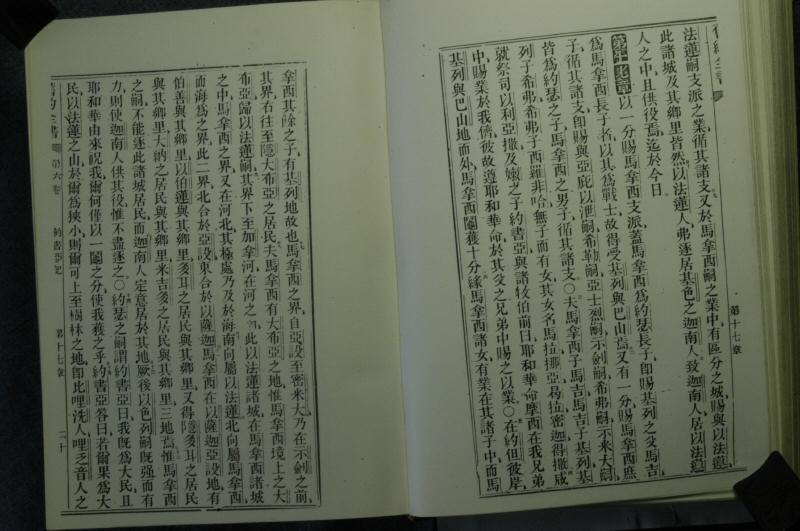 舊約全書
法蓮嗣支派之業循其諸支又於馬拿西嗣之業中有區分之城賜與以法蓮
此諸城及其鄉里皆然以法蓮人弗逐居基色之迦南人致迦南人居以法蓮
人之中且供役焉迄於今日
第十七章以一分賜馬拿西支派蓋馬拿西爲約瑟長子卽賜基列之父馬吉
爲馬拿西長子者以其爲戰士故得受基列與巴山焉又有一分賜馬拿西庶
子循其諸支卽賜與亞庇以泄嗣希勒嗣亞士烈嗣示劍嗣希弗嗣示米大嗣
皆爲約瑟之子馬拿西之男子循其諸支○夫馬拿西子馬吉馬吉子基列基
列子希弗希弗子西羅非哈無子而有女其女名馬拉挪亞曷拉密迦得撒咸
就祭司以利亞撒及嫩之子約書亞與諸牧伯前曰耶和華命摩西在我兄弟
中賜業於我儕彼故遵耶和華命於其父之兄弟中賜之以業○在約但彼岸
基列與巴山地而外馬拿西鬮獲十分緣馬拿西諸女有業在其諸子中而馬
第十七章
拿西其餘之子有基列地故也馬拿西之界自亞設至密米大乃在示劍之前
其界右往至隱大布亞之居民夫馬拿西有大布亞之地惟馬拿西境上之大
布亞歸以法蓮嗣其界下至加拿河在河之 此以法蓮諸城在馬拿西諸城
之中馬拿西之界又在河北其極處乃及於海南向屬以法蓮北向屬馬拿西
而海爲之界此二界北合於亞設東合於以薩迦馬拿西在以薩迦亞設地有
伯善與其鄉里以伯蓮與其鄉里多耳之居民與其鄉里又得隱多耳之居民
與其鄉里大納之居民與其鄉里米吉多之居民與其鄉里三地焉惟馬拿西
之嗣不能逐此諸城居民而迦南人定意居於其地厥後以色列嗣旣强而有
力則使迦南人供其役惟不盡逐之○約瑟之嗣謂約書亞曰我旣爲大民且
耶和華由來祝我爾何僅以一鬮之分使我獲之乎約書亞答曰若爾果爲大
民以法蓮之山於爾爲狹小則爾可上至樹林之地卽比哩洗人哩乏音人之
舊約全書 第六卷 約書亞記 第十七章 二十